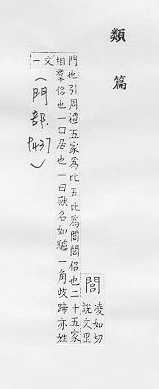 類篇
閭
凌如切
說文里
門也引周禮五家為比五比為閭閭侶也二十五家
相羣侶也一曰居也一曰獸名如驢一角歧蹄亦姓
文一
(門部,437)